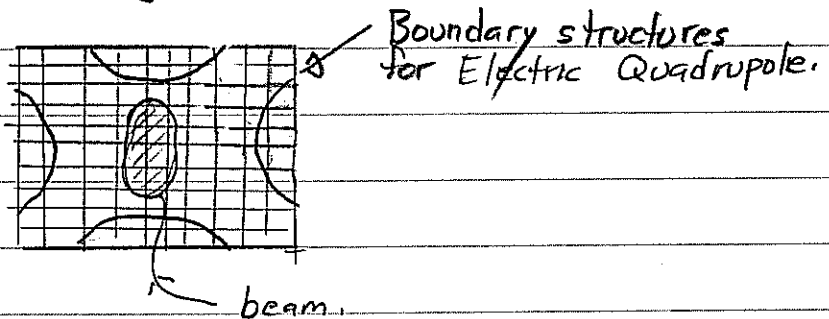 Boundary structures
for Electric Quadrupole.
beam.